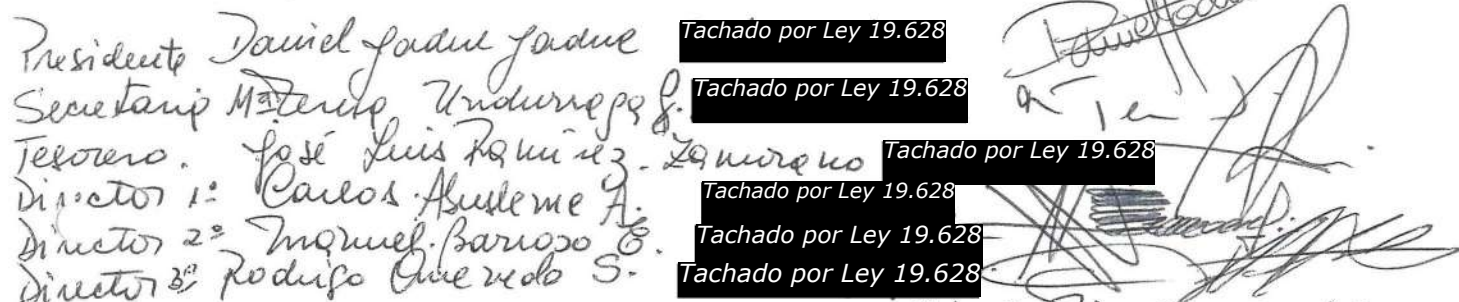 Presidente Daniel Jadue Jadue Tachado por Ley 19.628
Secretario Mª Teresa Undurraga G. Tachado por Ley 19.628
Tesorero. José Luis Ramirez. Zamorano Tachado por Ley 19.628
Director 1º Carlos Abusleme A. Tachado por Ley 19.628
Director 2º Manuel. Barroso E. Tachado por Ley 19.628
Director 3º Rodrigo Quevedo S. Tachado por Ley 19.628